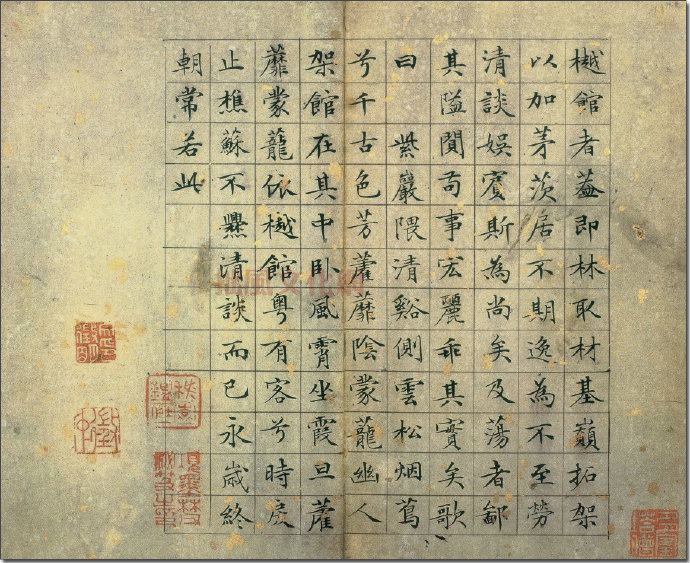 樾館者葢即林取材基巔拓架
以加茅茨居不期逸為不至勞
清談娛賓斯為尚矣及蕩者鄙
其隘閒苟事宏麗乖其實矣歌
曰 紫巖隈清谿側雲松烟蔦
兮千古色芳藿蘼陰蒙蘢幽人
架館在其中臥風霄坐霞旦藿
蘼蒙蘢依樾館粵有客兮時戾
止樵蘇不爨清談而已永歲終
朝常若此